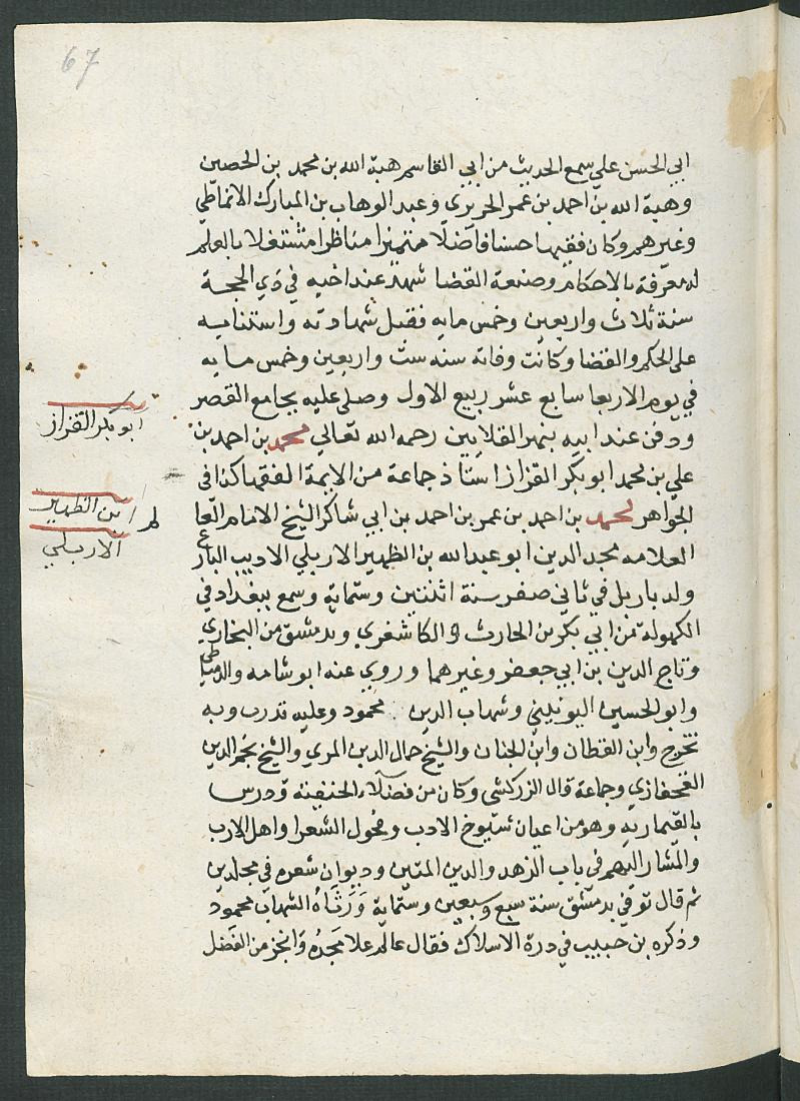 67
ابي الحسن علي سمع الحديث من ابي القاسم هبة الله بن محمد بن الحصين
وهبة الله بن احمد بن عمر الحريري وعبد الوهاب بن المبارك الانماطي
وغيرهم وكان فقيها حسنا فاضلا متميزا مناظرا مشتغلا بالعلم
له معرفة بالاحكام وصنعة القضا شهد عند اخيه في ذي الحجة
سنة ثلاث واربعين وخمس مايه فقبل شهادته واستنابه
على الحكم والقضا وكانت وفاته سنه ست واربعين وخمس مايه
في يوم الاربعا سابع عشر ربيع الاول وصلى عليه بجامع القصر
ودفن عند ابيه بنهر القلايين رحمه الله تعالي محمد بن احمد بن
ابو بكر القزاز
علي بن محمد ابو بكر القزاز استاذ جماعة من الايمة الفقها كذا في
الجواهر محمد بن احمد بن عمر بن احمد بن ابي شاكر الشيخ الامام العا
ابن الظهير
الاربلي
العلامه مجد الدين ابو عبد الله بن الظهير الاربلي الاديب البارع
ولد باربل في ثاني صفر سنة اثنتين وستماية وسمع ببغداد في
الكهولة من ابي بكر بن الحارث والكاشغري وبدمشق من البخاري
وتاج الدين بن ابي جعفر وغيرهما وروي عنه ابو شامه والدمياطي
وابو الحسين اليونيني وشهاب الدين محمود وعليه تدرب وبه
تخرج وابن العطان وابن الجنان والشيخ جمال الدين المزي والشيخ نجم الدين
القحفازي وجماعة قال الزركشي وكان من فضلاء الحنفيته ودرس
بالقيمازيه وهو من اعيان شيوخ الادب وفحول الشعرا واهل الارب
والمشار اليهم في باب الزهد والدين المتين وديوان شعره في مجلدين
ثم قال توفي بدمشق سنة سبع وسبعين وستماية ورثاه الشهاب محمود
وذكره بن حبيب في درة الاسلاك فقال عالم علا مجده وانجز من الفضل